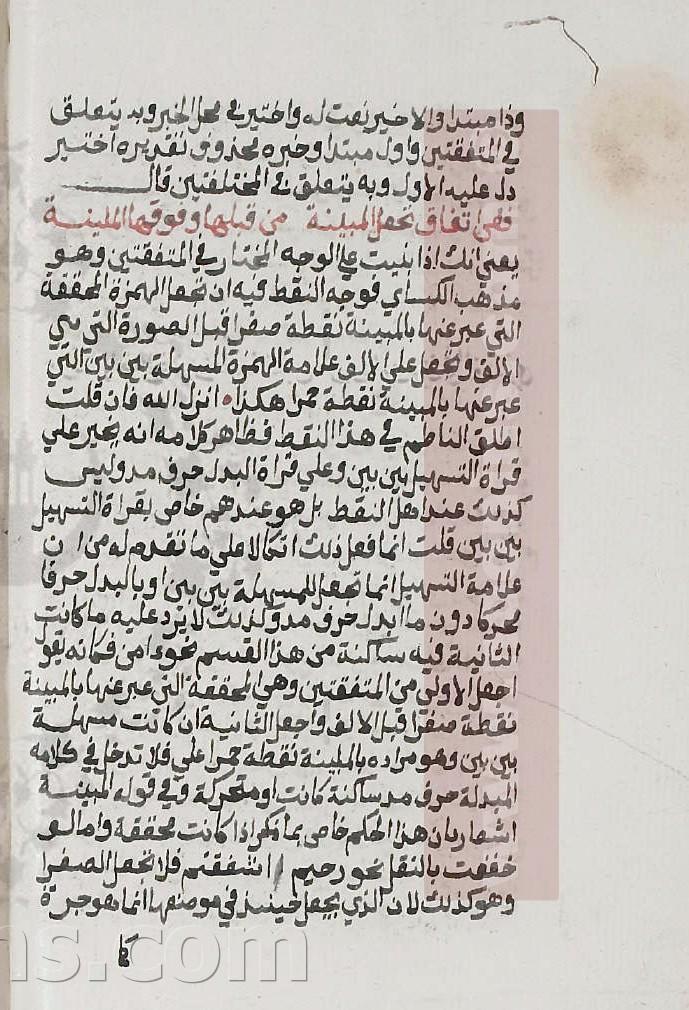 وذا مبتدا والاخير نعت له واختير في محل الخبر وبه يتعلق
في المتفقتين واول مبتدا وخبره محذوف تقديره اختير
دل عليه الاول وبه يتعلق في المختلفتين قال
ففي اتفاق تجعل المبينة من قبلها وفوقها الملينة
يعني انك اذا بنيت علي الوجه المختار في المتفقتين وهو
مذهب الكساي فوجه النقط فيه ان تجعل الهمزة المحققة
التي عبر عنها بالمبينة نقطة صفرا قبل الصورة التي هي
الالف وتجعل علي الالف علامة الهمزة المسهلة بين بين التي
عبر عنها بالمبينة نقطة حمرا هكذا ءانزل الله فان قلت
اطلق الناظم في هذا النقط فظاهر كلامه انه يجير علي
قراة التسهيل بين بين وعلي قراة البدل حرف مد وليس
كذلك عند اهل النقط بل هو عندهم خاص بقراة التسهيل
بين بين قلت انما فعل ذلك اتكالا علي ما تقدم له من ان
علامة التسهيل انما تجعل للمسهلة بين بين او بالبدل حرفا
محركا دون ما ابدل حرف مد وكذلك لا يرد عليه ما كانت
الثانية فيه ساكنة من هذا القسم نحو ءامن فكانه يقو
اجعل الاولي من المتفقتين وهي المحققة التي عبر عنها بالمبينة
نقطة صفرا قبل الالف واجعل الثانية ان كانت مسهلة
بين بين وهو مراده بالملينة نقطة حمرا علي فلا تدخل في كلامه
المبدلة حرف مد ساكنة كانت او متحركة وفي قوله المبينة
اشعار بان هذا الحكم خاص بما ذكر اذا كانت محققة واما لو
خففت بالنقل نحو رحيم اشفقتم فلا تجعل الصفرا
وهو كذلك لان الذي يجعل حينيذ في موضعها انما هو جرة
كا
ns.com